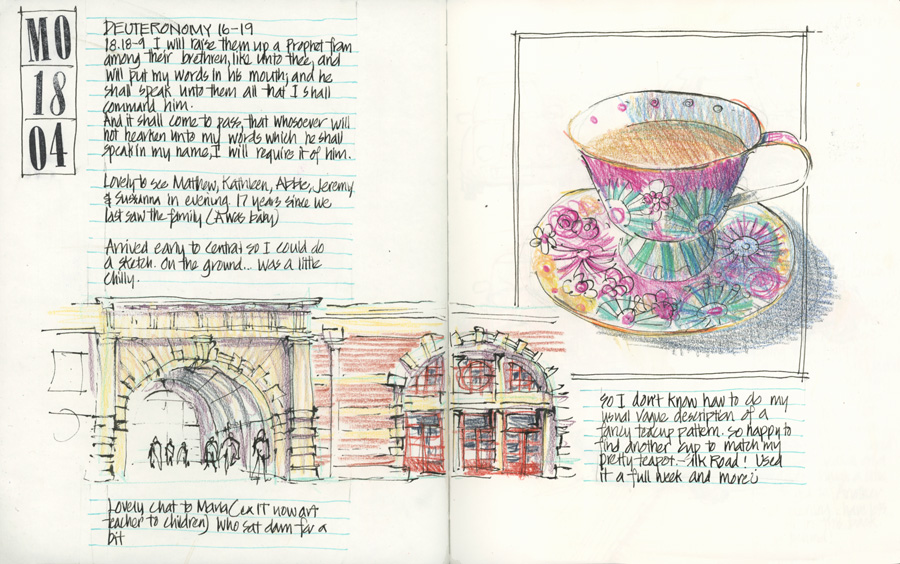 MO
18
04
DEUTERONOMY 16-19
18.18-9 I will raise them up a Prophet from
among their brethren, like unto thee, and
will put my words in his mouth; and he
shall speak unto them all that I shall
command him.
And it shall come to pass, that whosoever will
not hearken unto my words which he shall
speak in my name, I will require it of him.
Lovely to see Matthew, Kathleen, Abbie, Jeremy
& Susanna in evening. 17 years since we
last saw the family (A was baby)
Arrived early to Central so I could do
a sketch. On the ground... was a little
chilly.
Lovely chat to Maria (ex IT now art
teacher to children) who sat down for a
bit
So I don't know how to do my
usual vague description of a
fancy teacup pattern. So happy to
find another cup to match my
pretty teapot. - Silk Road! Used
it a full week and more